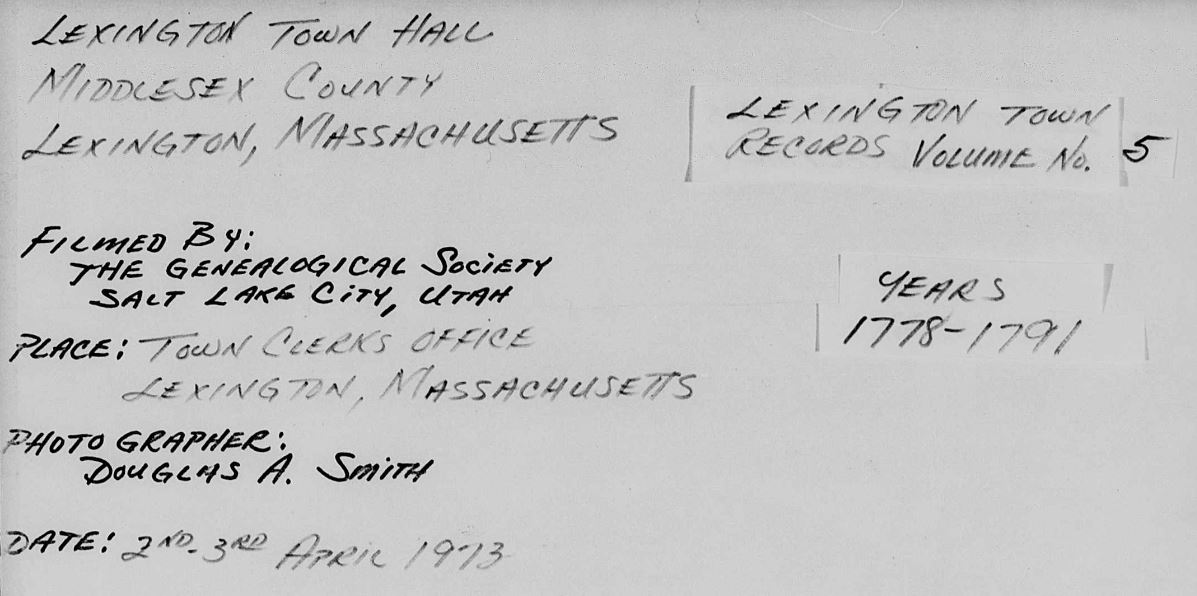 LEXINGTON TOWN HALL
MIDDLESEX COUNTY
LEXINGTON, MASSACHUSETTS
LEXINGTON TOWN
RECORDS VOLUME No. 5
FILMED BY:
THE GENEALOGICAL SOCIETY
SALT LAKE CITY, UTAH
YEARS
1778-1791
PLACE: TOWN CLERKS OFFICE
LEXINGTON, MASSACHUSETTS
PHOTOGRAPHER:
DOUGLAS A. SMITH
DATE: 2ND-3RD APRIL 1973